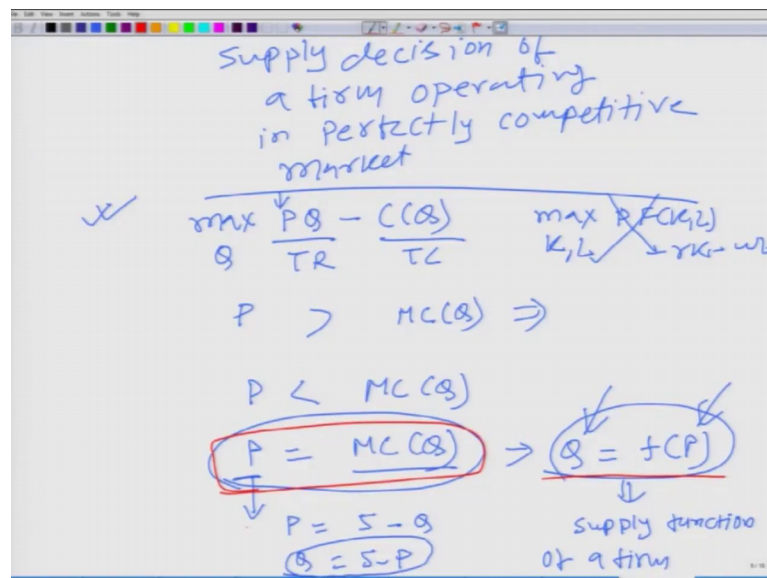 Edit View Insert Actions Tools Help
Supply decision of
a firm operating
in perfectly competitive
market
max PQ - C(Q) max P F(K,L)
Q TR TC K,L - rK - wL
P > MC(Q) ⇒
P < MC(Q)
P = MC(Q) ⇒ Q = f(P)
P = 5 - Q supply function
Q = 5 - P of a firm